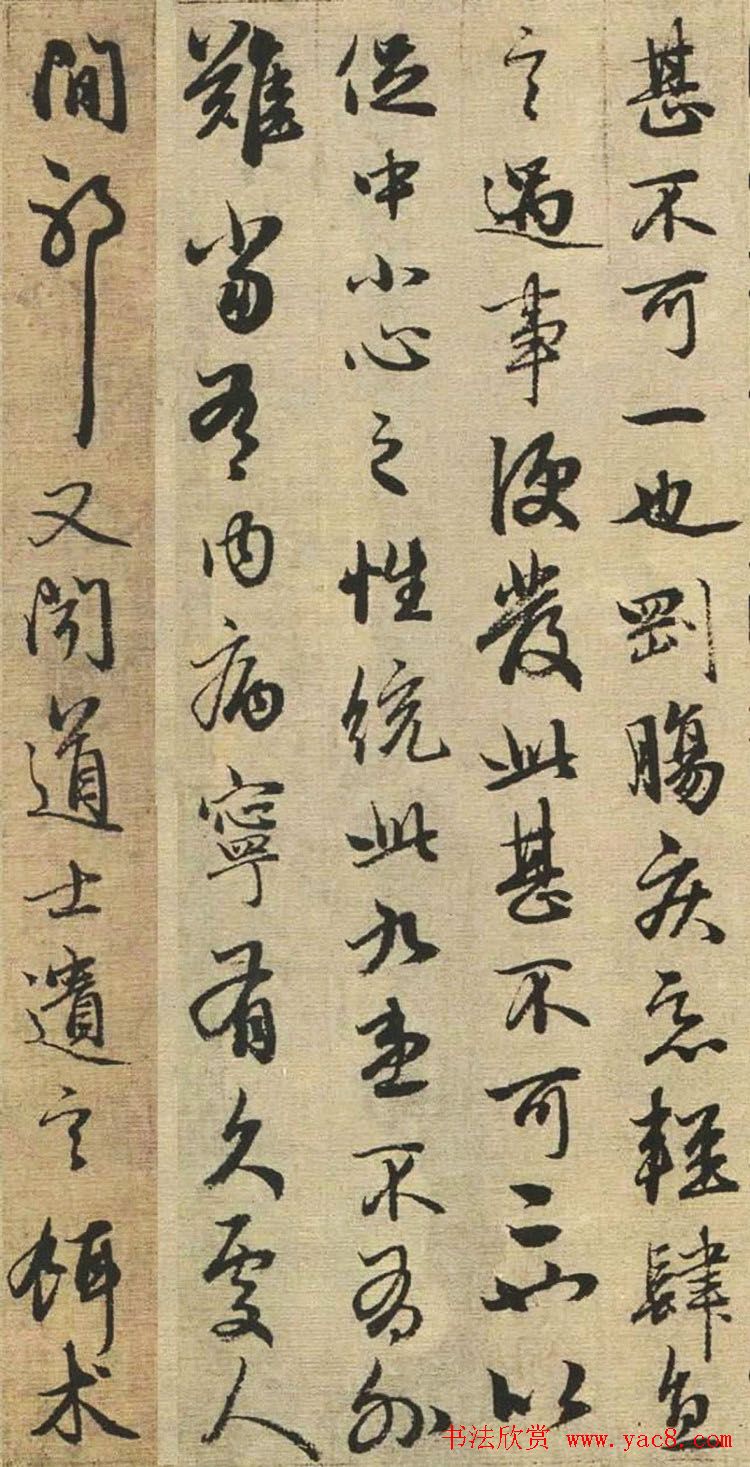 甚不可一也剛腸疾惡輕肆直
言遇事便發此甚不可二也以
促中小心之性統此九患不有外
難當有內病寧有久處人
間邪又聞道士遺言餌术
书法欣赏 www.yac8.com